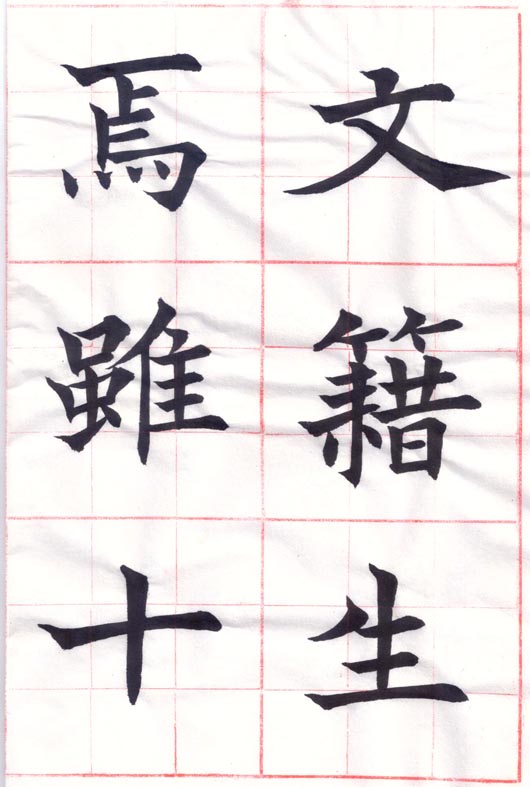 文籍生
焉雖十